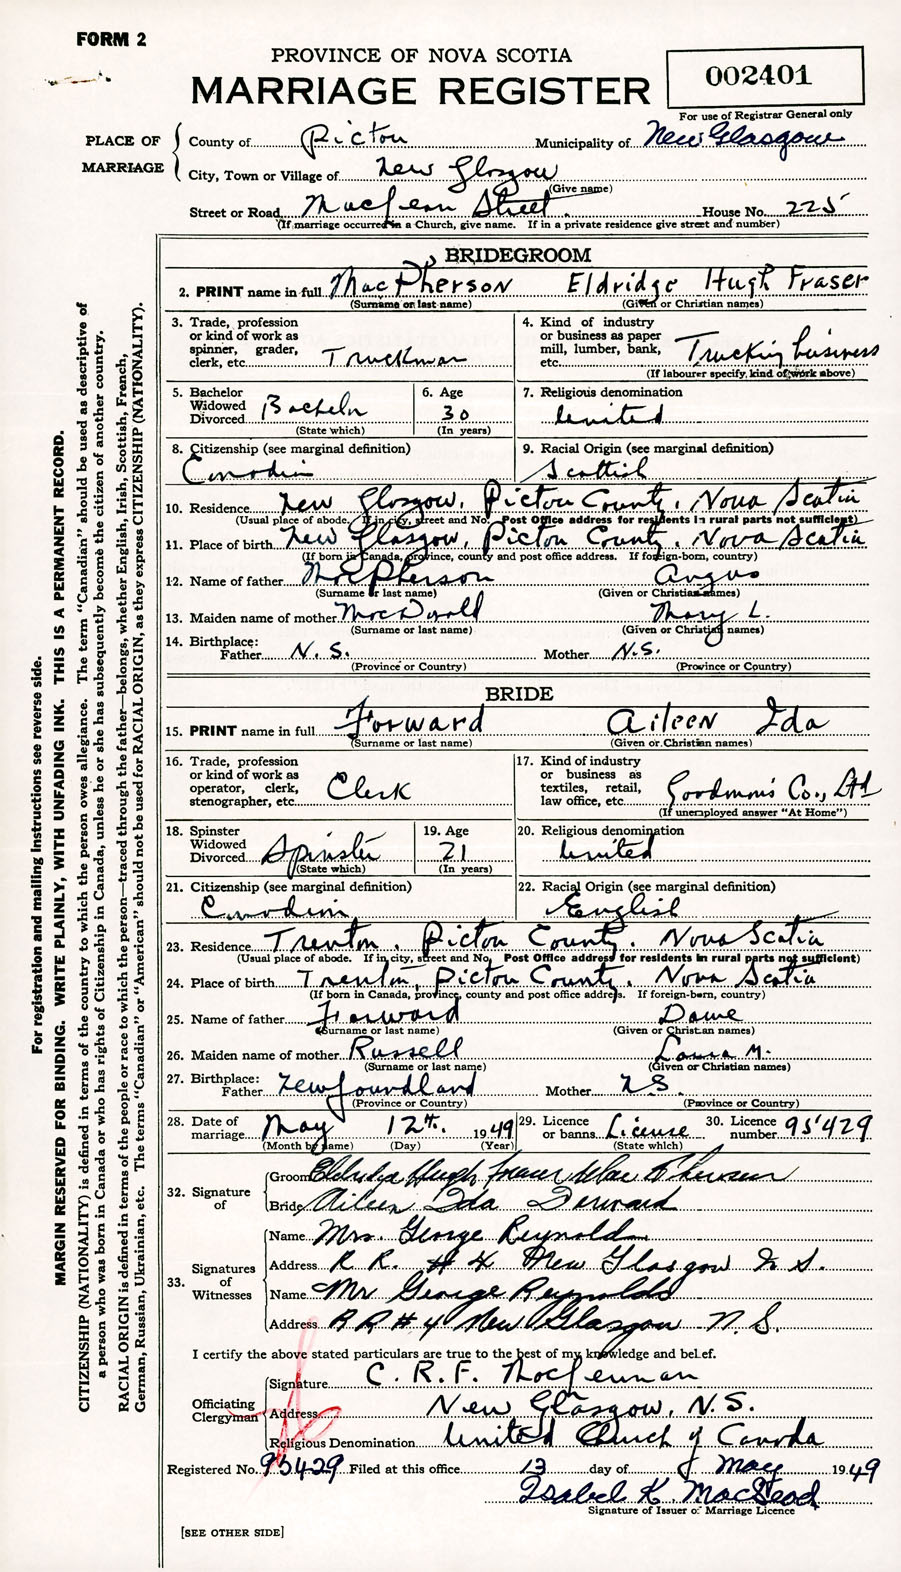 FORM 2
PROVINCE OF NOVA SCOTIA
MARRIAGE REGISTER
002401
For use of Registrar General only
PLACE OF MARRIAGE
County of Pictou Municipality of New Glasgow
City, Town or Village of New Glasgow
(Give name)
Street or Road MacLean Street. House No. 225
(If marriage occurred in a Church, give name. If in a private residence give street and number)
BRIDEGROOM
2. PRINT name in full MacPherson Eldridge Hugh Fraser
(Surname or last name) (Given or Christian names)
3. Trade, profession or kind of work as spinner, grader, clerk, etc. Truckman
4. Kind of industry or business as paper mill, lumber, bank, etc. Trucking business
(If labourer specify kind of work above)
5. Bachelor Widowed Divorced Bachelor
(State which)
6. Age 30
(In years)
7. Religious denomination United
8. Citizenship (see marginal definition) Canadian
9. Racial Origin (see marginal definition) Scottish
10. Residence New Glasgow, Pictou County, Nova Scotia
(Usual place of abode. If in city, street and No. Post Office address for residents in rural parts not sufficient)
11. Place of birth New Glasgow, Pictou County, Nova Scotia
(If born in Canada, province, county and post office address. If foreign-born, country)
12. Name of father MacPherson Angus
(Surname or last name) (Given or Christian names)
13. Maiden name of mother MacDonald Mary L.
(Surname or last name) (Given or Christian names)
14. Birthplace: Father N. S. Mother N.S.
(Province or Country) (Province or Country)
BRIDE
15. PRINT name in full Forward Aileen Ida
(Surname or last name) (Given or Christian names)
16. Trade, profession or kind of work as operator, clerk, stenographer, etc. Clerk
17. Kind of industry or business as textiles, retail, law office, etc. Goodman's Co., Ltd
(If unemployed answer "At Home")
18. Spinster Widowed Divorced Spinster
(State which)
19. Age 21
(In years)
20. Religious denomination United
21. Citizenship (see marginal definition) Canadian
22. Racial Origin (see marginal definition) English
23. Residence Trenton, Pictou County, Nova Scotia
(Usual place of abode. If in city, street and No. Post Office address for residents in rural parts not sufficient)
24. Place of birth Trenton, Pictou County, Nova Scotia
(If born in Canada, province, county and post office address. If foreign-born, country)
25. Name of father Forward
(Surname or last name) (Given or Christian names)
26. Maiden name of mother Russell Laura M.
(Surname or last name) (Given or Christian names)
27. Birthplace: Father Newfoundland Mother N.S.
(Province or Country) (Province or Country)
28. Date of marriage May 12th. 1949
(Month by name) (Day) (Year)
29. Licence or banns License
(State which)
30. Licence number 95429
32. Signature of
Groom Eldridge Hugh Fraser MacPherson
Bride Aileen Ida Forward
33. Signatures of Witnesses
Name Mrs. George Reynolds
Address R R. # 4 New Glasgow N. S.
Name Mr George Reynolds
Address R R # 4 New Glasgow N. S.
I certify the above stated particulars are true to the best of my knowledge and belief.
Officiating Clergyman
Signature C. R. F. MacLennan
Address New Glasgow, N.S.
Religious Denomination United Church of Canada
Registered No. 95429 Filed at this office 13 day of May 1949
Isabel K. MacLeod
Signature of Issuer of Marriage Licence
[SEE OTHER SIDE]
For registration and mailing instructions see reverse side.
MARGIN RESERVED FOR BINDING. WRITE PLAINLY, WITH UNFADING INK. THIS IS A PERMANENT RECORD.
CITIZENSHIP (NATIONALITY) is defined in terms of the country to which the person owes allegiance. The term "Canadian" should be used as descriptive of
a person who was born in Canada or who has rights of Citizenship in Canada, unless he or she has subsequently become the citizen of another country.
RACIAL ORIGIN is defined in terms of the people or race to which the person—traced through the father—belongs, whether English, Irish, Scottish, French,
German, Russian, Ukrainian, etc. The terms "Canadian" or "American" should not be used for RACIAL ORIGIN, as they express CITIZENSHIP (NATIONALITY).